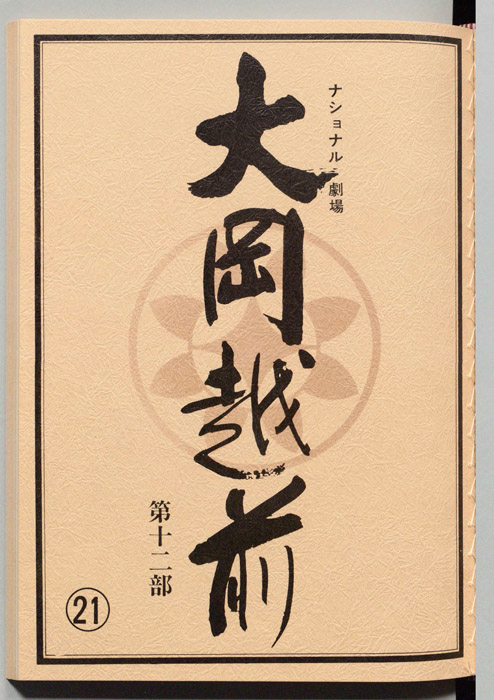 ナショナル劇場
大岡越前
第十二部
21